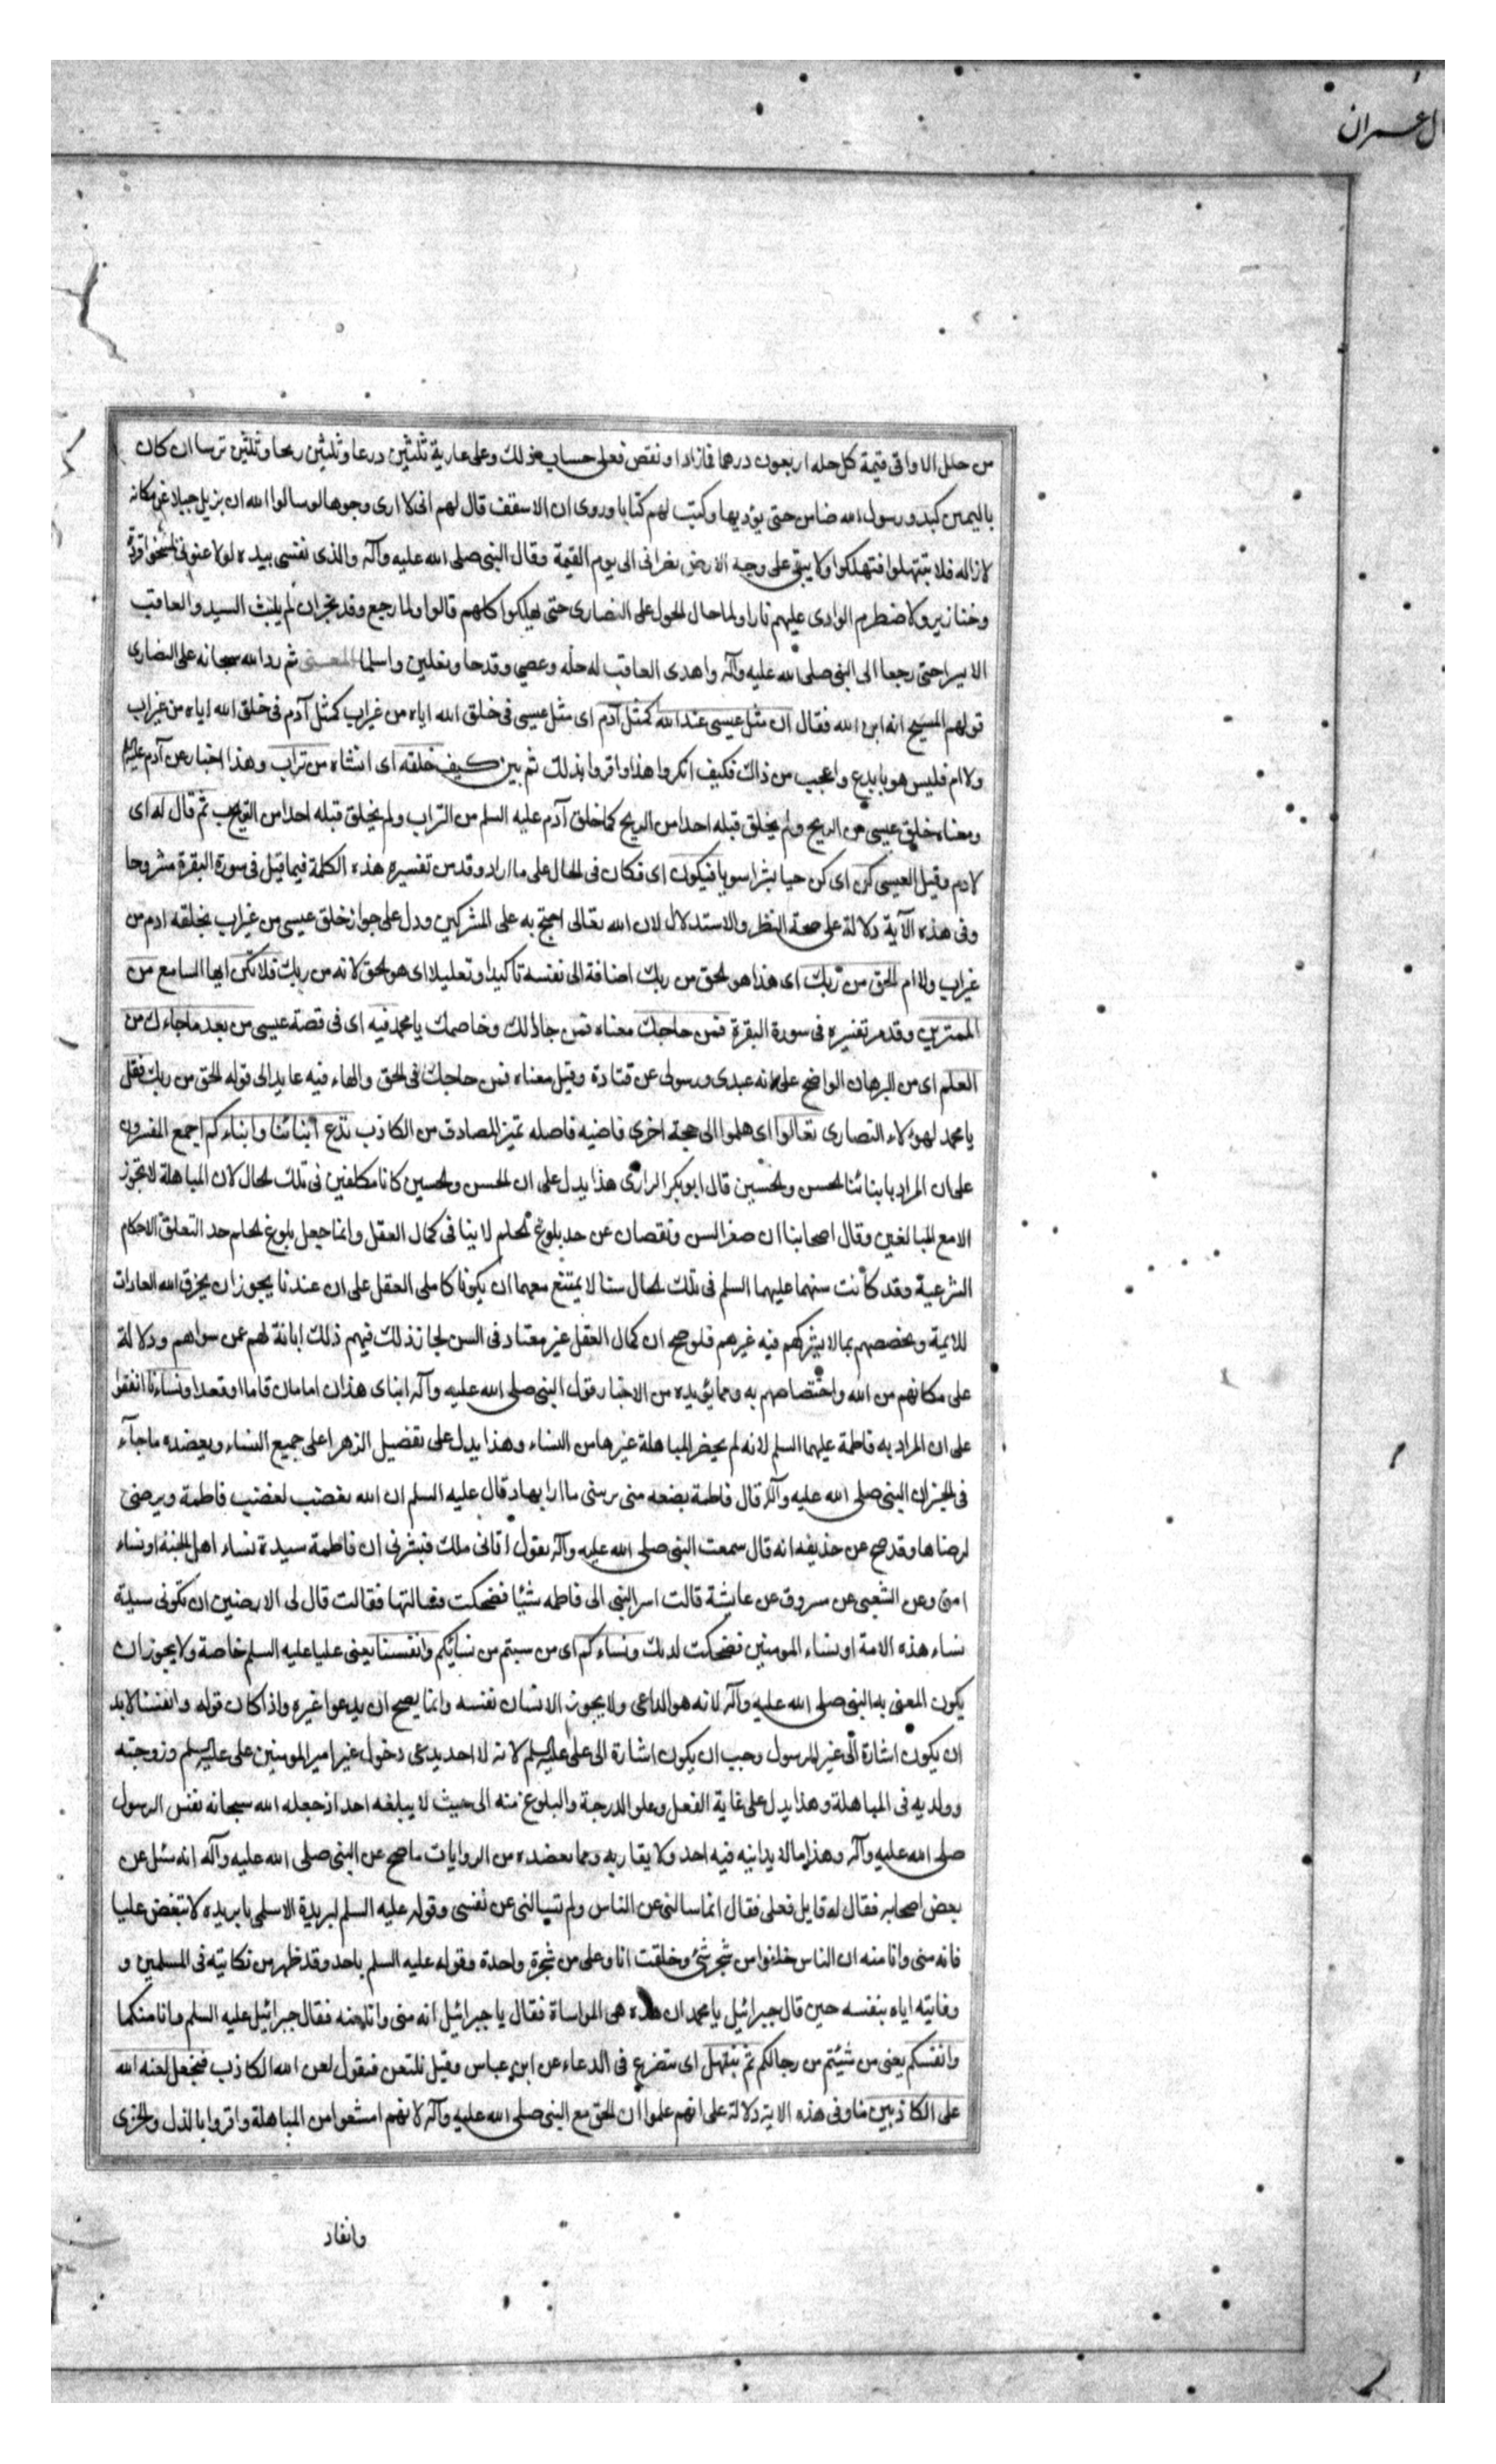 ال عمران
من حلل الاواقى قيمة كل حله اربعون درهما فمازاد او نقص فعلى حساب ذلك وعلى عارية ثلثين درعا وثلثين رمحا وثلثين ترسا ان كان
باليمن كيد ورسول الله ضامن حتى يؤديها وكتب لهم كتابا وروى ان الاسقف قال لهم انى لا ارى وجوها لو سالوا الله ان يزيل جبلا عن مكانه
لازاله فلا تبتهلوا فتهلكوا ولا يبقى على وجه الارض نصرانى الى يوم القيمة وقال النبى صلى الله عليه وآله والذى نفسى بيده لو لاعنونى لمسخوا قردة
وخنازير ولاضطرم الوادى عليهم نارا ولما حال الحول على النصارى حتى يهلكوا كلهم قالوا ولما رجع وفد نجران لم يلبث السيد والعاقب
الا يسيرا حتى رجعا الى النبى صلى الله عليه وآله واهدى العاقب له حله وعصى وقدحا ونعلين واسلما المعنى ثم رد الله سبحانه على النصارى
قولهم المسيح انه ابن الله فقال ان مثل عيسى عند الله كمثل آدم اى مثل عيسى فى خلق الله اياه من غير اب كمثل آدم فى خلق الله اياه من غير اب
ولا ام فليس هو بابدع واعجب من ذلك فكيف انكروا هذا واقروا بذلك ثم بين كيف خلقه اى انشاه من تراب وهذا اخبار عن آدم عليه السلم
ومعناه خلق عيسى من الريح ولم يخلق قبله احدا من الريح كما خلق آدم عليه السلم من التراب ولم يخلق قبله احدا من التراب ثم قال له اى
لادم وقيل لعيسى كن اى كن حيا بشرا سويا فيكون اى فكان فى الحال على ما اراد وقد مر تفسيره هذه الكلمة فيما قبل فى سورة البقرة مشروحا
وفى هذه الآية دلالة على صحة النظر والاستدلال لان الله تعالى احتج به على المشركين ودل على جواز خلق عيسى من غير اب بخلقه ادم من
غير اب ولا ام الحق من ربك اى هذا هو الحق من ربك اضافة الى نفسه تاكيدا وتعليلا اى هو الحق لانه من ربك فلا تكن ايها السامع من
الممترين وقد مر تفسيره فى سورة البقرة فمن حاجك معناه فمن جادلك وخاصمك يا محمد فيه اى فى قصة عيسى من بعد ما جاءك من
العلم اى من البرهان الواضح على انه عبدى ورسولى عن قتادة وقيل معناه فمن حاجك فى الحق والهاء فيه عايد الى قوله الحق من ربك فقل
يا محمد لهؤلاء النصارى تعالوا اى هلموا الى حجة اخرى قاضيه فاصله تميز الصادق من الكاذب ندع ابنائنا وابناءكم اجمع المفسرون
على ان المراد بابنائنا الحسن والحسين قال ابو بكر الرازى هذا يدل على ان الحسن والحسين كانا مكلفين فى تلك الحال لان المباهلة لا تجوز
الا مع البالغين وقال اصحابنا ان صغر السن ونقصان عن حد بلوغ الحلم لا ينافى كمال العقل وانما جعل بلوغ الحلم حد التعلق الاحكام
الشرعية وقد كانت سنهما عليهما السلم فى تلك الحال سنا لا يمتنع معهما ان يكونا كاملى العقل على ان عندنا يجوز ان يخرق الله العادات
للايمة ويخصصهم بما لا يشركهم فيه غيرهم فلو صح ان كمال العقل غير معتاد فى السن لجاز ذلك فيهم ذلك ابانة لهم عمن سواهم ودلالة
على مكانهم من الله واختصاصهم به ومما يؤيده من الاخبار قول النبى صلى الله عليه وآله ابناى هذان امامان قاما او قعدا ونساءنا اتفقوا
على ان المراد به فاطمة عليها السلم لانه لم يحضر المباهلة غيرها من النساء وهذا يدل على تفضيل الزهرا على جميع النساء ويعضده ما جآء
فى الخبر ان النبى صلى الله عليه وآله قال فاطمة بضعه منى يريبنى ما ارابها وقال عليه السلم ان الله يغضب لغضب فاطمة ويرضى
لرضاها وقد صح عن حذيفه انه قال سمعت النبى صلى الله عليه وآله يقول اتانى ملك فبشرنى ان فاطمة سيدة نساء اهل الجنة او نساء
امتى وعن الشعبى عن مسروق عن عايشة قالت اسر النبى الى فاطمه شيئا فضحكت فسالتها فقالت قال لى الا ترضين ان تكونى سيدة
نساء هذه الامة او نساء المومنين فضحكت لذلك ونساءكم اى من شيتم من نسائكم وانفسنا يعنى عليا عليه السلم خاصة ولا يجوز ان
يكون المعنى به النبى صلى الله عليه وآله لانه هو الداعى ولا يجوز الانسان نفسه وانما يصح ان يدعوا غيره واذا كان قوله وانفسنا لا بد
ان يكون اشارة الى غير الرسول وجب ان يكون اشارة الى على عليه السلم لانه لا احد يدعى دخول غير امير المومنين على عليه السلم وزوجته
وولديه فى المباهلة وهذا يدل على غاية الفضل وعلو الدرجة والبلوغ منه الى حيث لا يبلغه احد اذ جعله الله سبحانه نفس الرسول
صلى الله عليه وآله وهذا ما لا يدانيه فيه احد ولا يقاربه ومما يعضده من الروايات ما صح عن النبى صلى الله عليه وآله انه سئل عن
بعض اصحابه فقال له قايل فعلى فقال انما سالتنى عن الناس ولم تسالنى عن نفسى وقوله عليه السلم لبريدة الاسلمى يا بريده لا تبغض عليا
فانه منى وانا منه ان الناس خلقوا من شجر شتى وخلقت انا وعلى من شجرة واحدة وقوله عليه السلم باحد وقد ظهر من نكايته فى المسلمين و
وقايته اياه بنفسه حين قال جبرائيل يا محمد ان هذه هى المواساة فقال يا جبرائيل انه منى وانا منه فقال جبرائيل عليه السلم وانا منكما
وانفسكم يعنى من شيئتم من رجالكم ثم نبتهل اى نتضرع فى الدعاء عن ابن عباس وقيل نلتعن فنقول لعن الله الكاذب فنجعل لعنه الله
على الكاذبين منا وفى هذه الاية دلالة على انهم علموا ان الحق مع النبى صلى الله عليه وآله لانهم امتنعوا من المباهلة واقروا بالذل والخزى
وانقاد